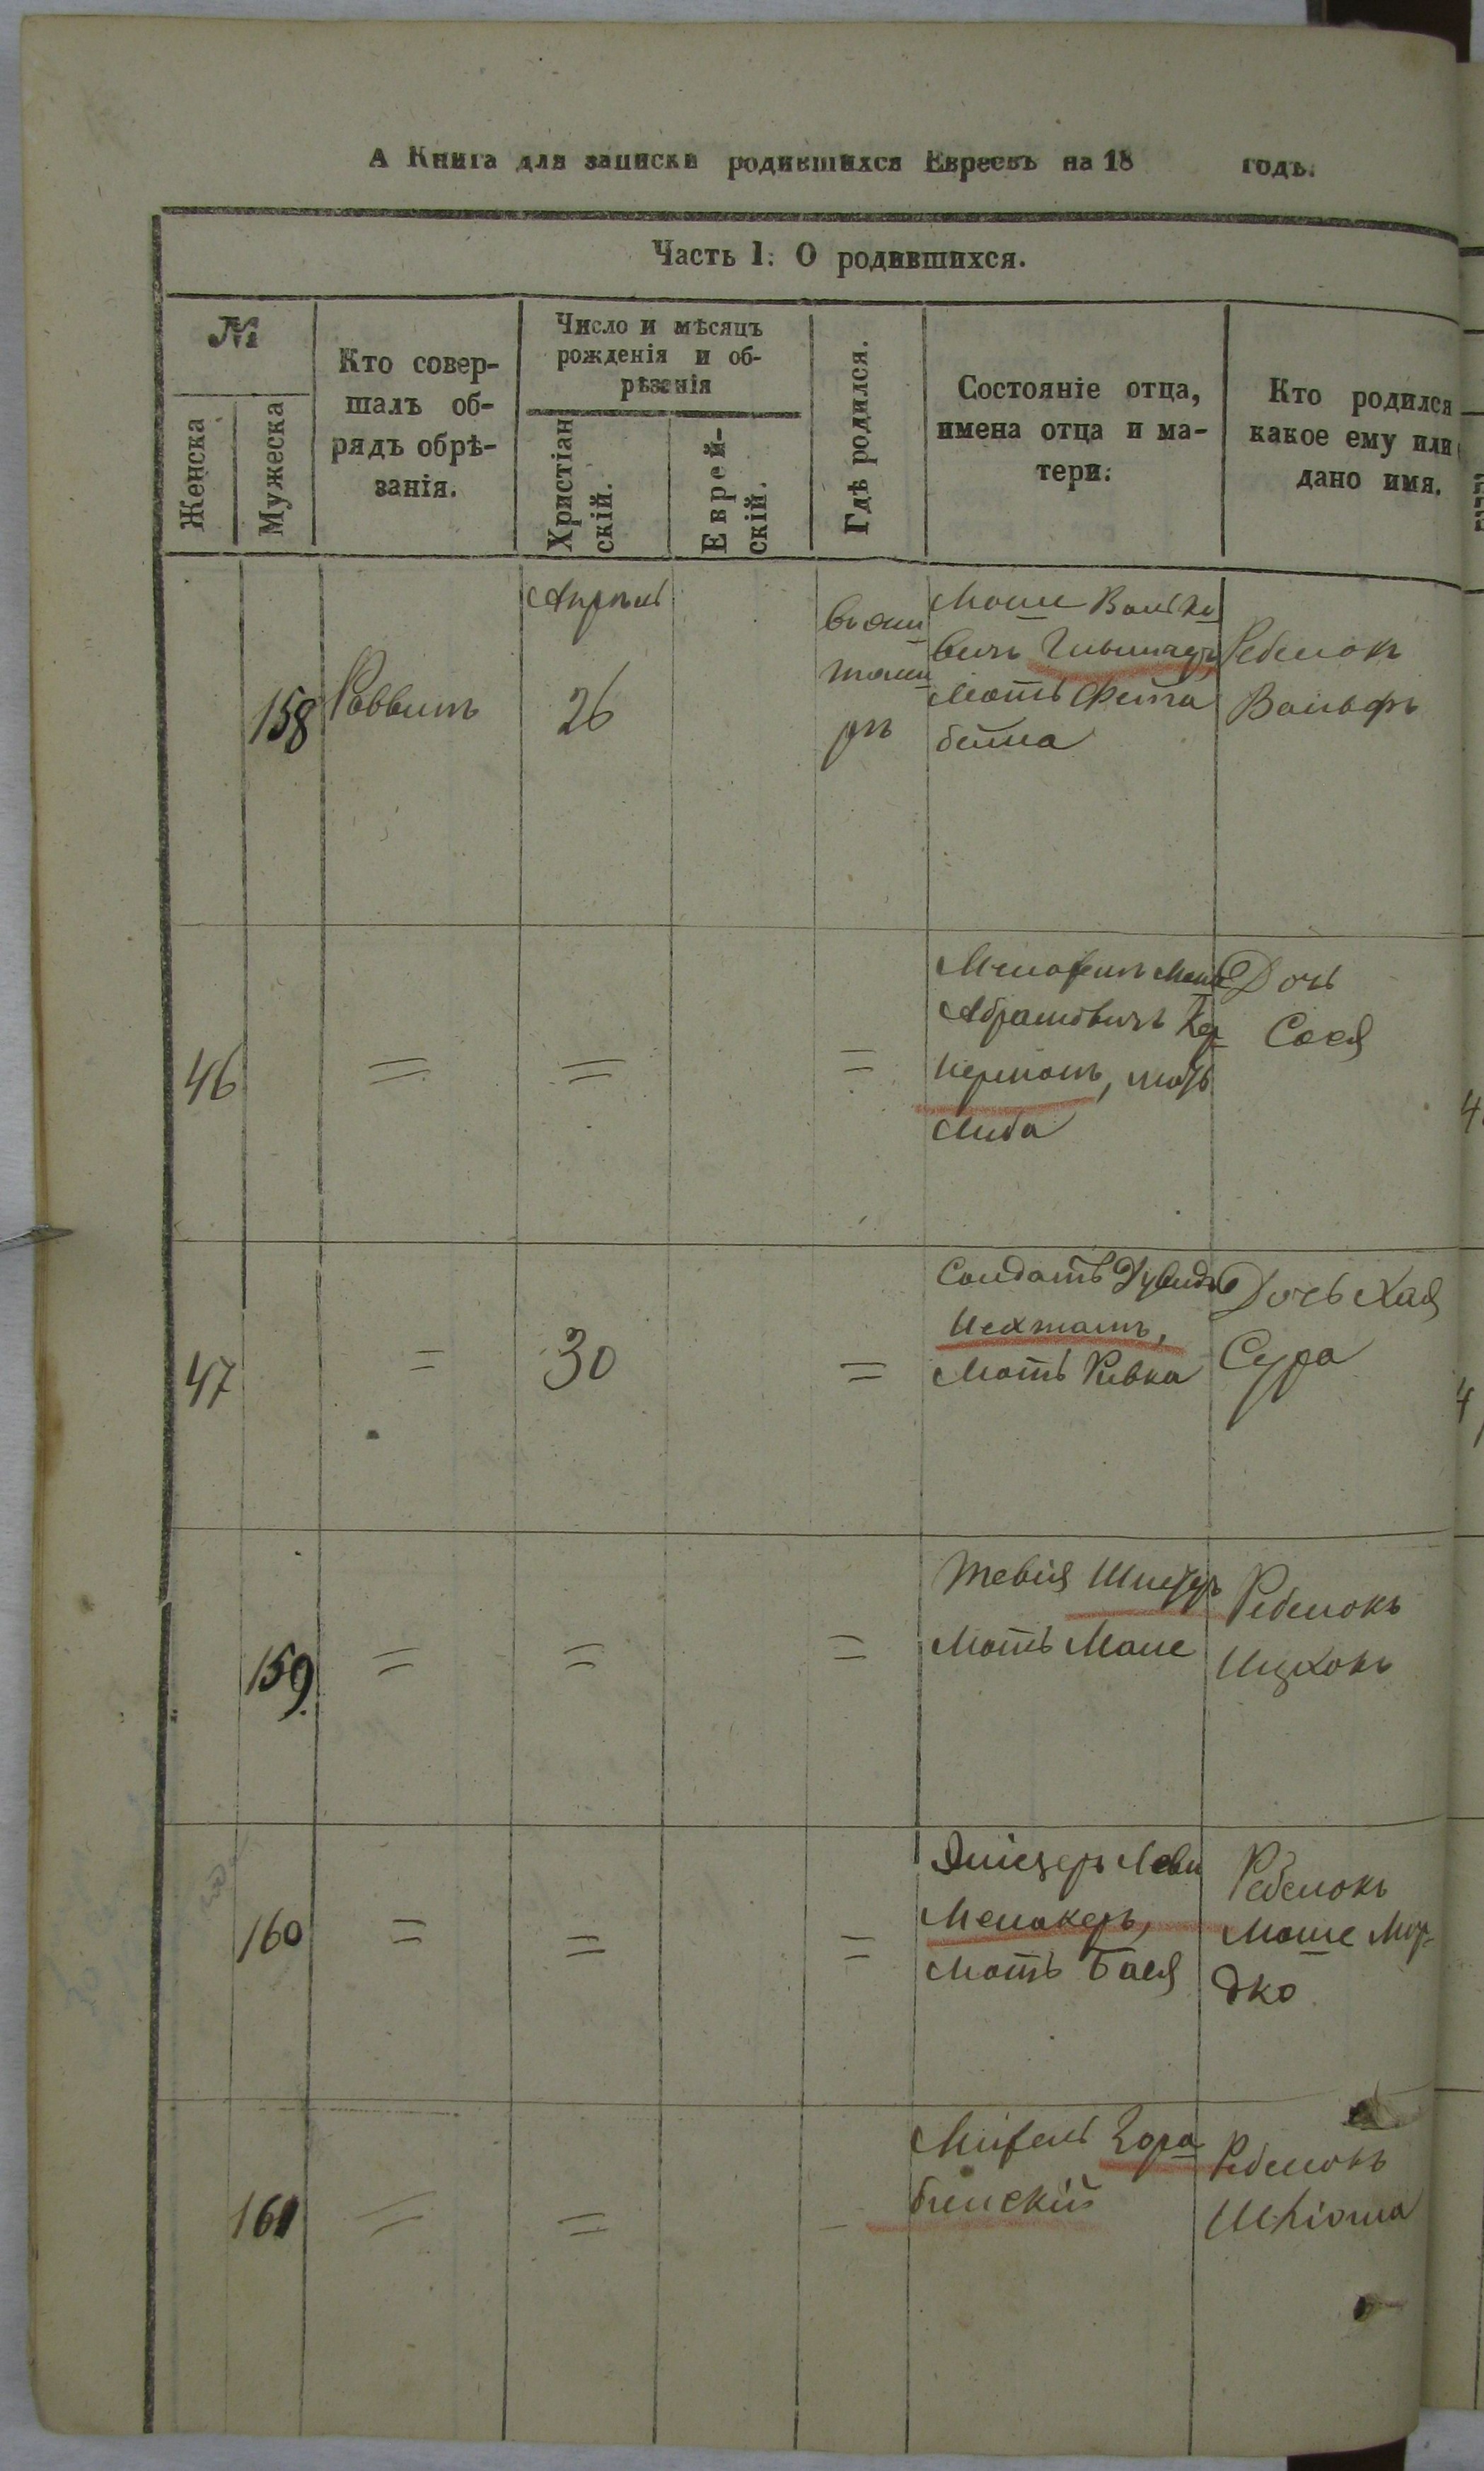 А Книга для записки родившихся Евреевъ на 18 годъ.
Часть 1. О родившихся.
№
Женска
Мужеска
Кто совер-
шалъ об-
рядъ обрѣ-
занія.
Число и мѣсяцъ
рожденія и об-
рѣзанія
Христіан
скій.
Еврей-
скій.
Гдѣ родился.
Состояніе отца,
имена отца и ма-
тери.
Кто родился
какое ему или
дано имя.
158
Раввинъ
Апрѣль
26
въ жи
томи
рѣ
Моше Волько
вичъ
Мать Фейга
бейла
Ребенокъ
Вольфъ
46
=
=
=
Абрамовичъ Кер
нерманъ, мать
Либа
Дочь
Сося
47
=
30
=
Солдатъ Дувидъ
Нехтманъ,
Мать Ривка
Дочь Хая
Сура
159.
=
=
=
Тевія
Мать Мале
Ребенокъ
Ицхокъ
160
=
=
=
Эліезеръ Леви
Менакеръ,
Мать Бася
Ребенокъ
Моше Мор-
дко
161
=
=
–
Михель Гора
бинскій
Ребенокъ
Шліома